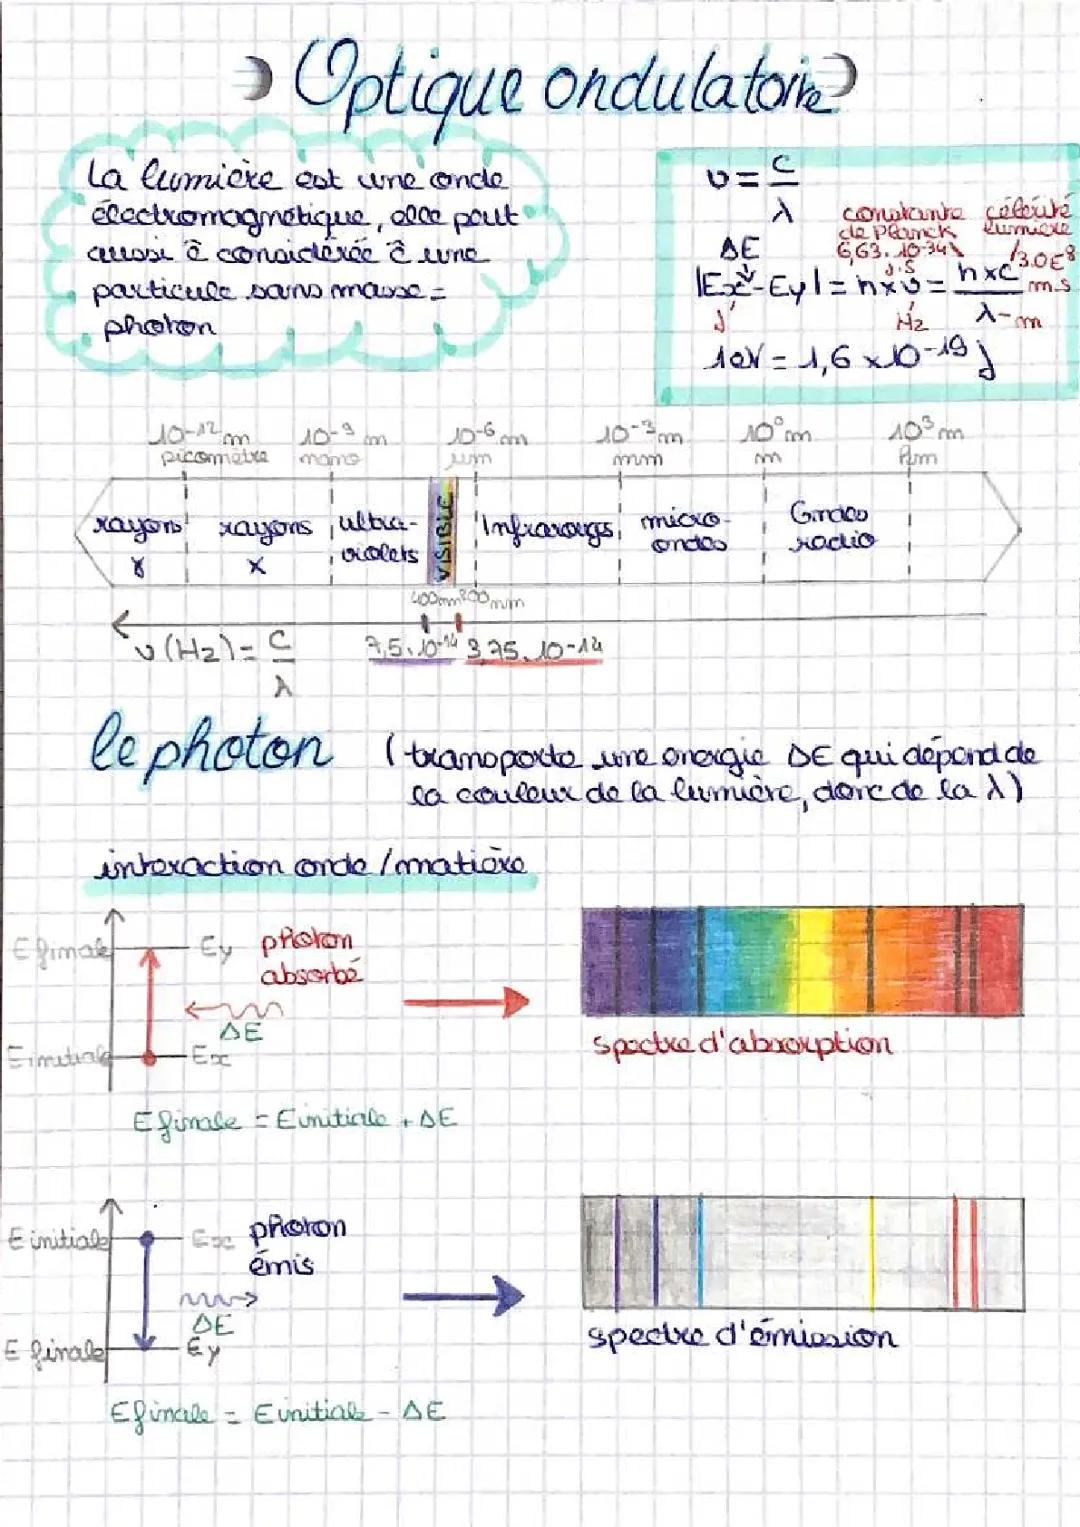 Optique ondulatoire
La lumière est une onde
électromagnétique, elle peut
aussi ê considérée ê une
particule sans masse =
photon
υ = c
λ
constante célérité
de Planck lumière
ΔE 6,63.10-34 3.0E8
J.S
|Ex-Ey| = h x υ = h x c m.s
J Hz λ-m
1eV = 1,6 x 10-19 J
10-12 m 10-9 m 10-6 m 10-3 m 10° m 10³ m
picomètre nano µm mm m km
rayons rayons ultra- VISIBLE Infrarouges micro- Ondes
γ X violets ondes radio
400nm 800nm
υ (Hz) = c 7,5.10-14 3,75.10-14
λ
le photon (transporte une énergie ΔE qui dépend de
la couleur de la lumière, donc de la λ)
interaction onde / matière
E finale Ey photon
absorbé
ΔE
E initiale Ex
spectre d'absorption
E finale = E initiale + ΔE
E initiale Ex photon
émis
ΔE
E finale Ey
spectre d'émission
E finale = E initiale - ΔE